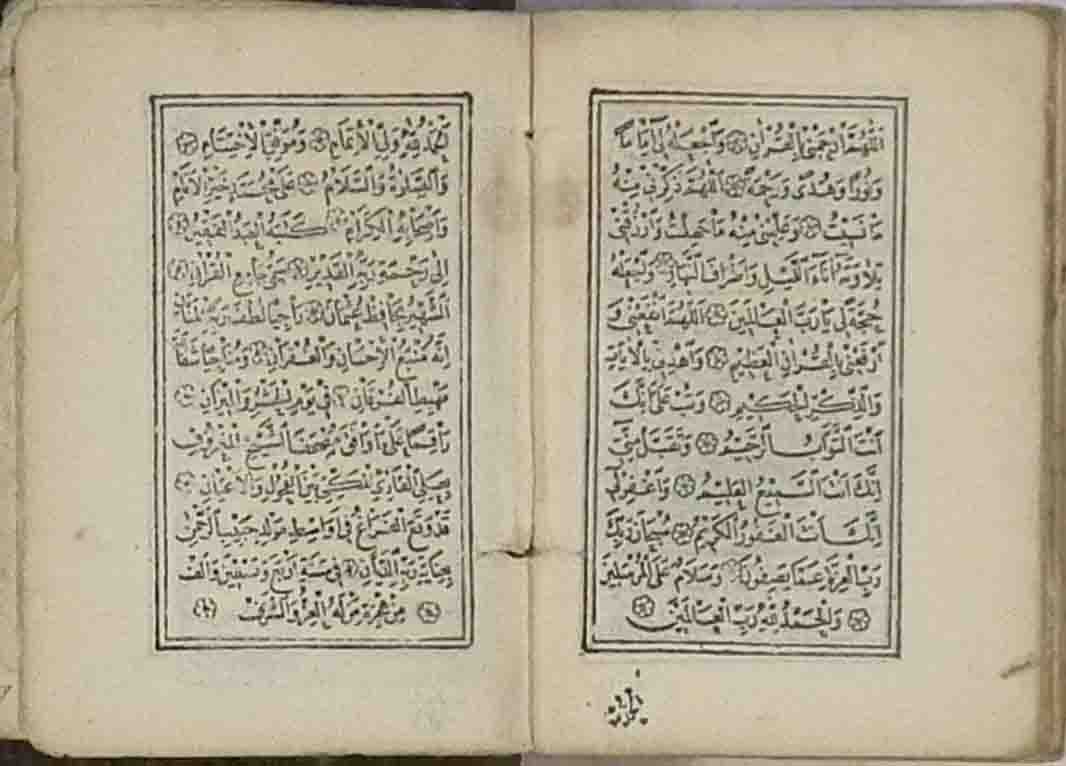 اَللّٰهُمَّ ارْحَمْنِي بِالْقُرْاٰنِ وَاجْعَلْهُ لِي اِمَامًا
وَنُورًا وَهُدًى وَرَحْمَةً اَللّٰهُمَّ ذَكِّرْنِي مِنْهُ
مَا نَسِيتُ وَعَلِّمْنِي مِنْهُ مَا جَهِلْتُ وَارْزُقْنِي
تِلَاوَتَهُ اٰنَاءَ اللَّيْلِ وَاَطْرَافَ النَّهَارِ وَاجْعَلْهُ
حُجَّةً لِي يَا رَبَّ الْعَالَمِينَ اَللّٰهُمَّ انْفَعْنِي وَ
ارْفَعْنِي بِالْقُرْاٰنِ الْعَظِيمِ وَاهْدِنِي بِالْاٰيَاتِ
وَالذِّكْرِ الْحَكِيمِ وَتُبْ عَلَيَّ اِنَّكَ
اَنْتَ التَّوَّابُ الرَّحِيمُ وَتَقَبَّلْ مِنِّي
اِنَّكَ اَنْتَ السَّمِيعُ الْعَلِيمُ وَاغْفِرْ لِي
اِنَّكَ اَنْتَ الْغَفُورُ الْكَرِيمُ سُبْحَانَ رَبِّكَ
رَبِّ الْعِزَّةِ عَمَّا يَصِفُونَ وَسَلَامٌ عَلَى الْمُرْسَلِينَ
وَالْحَمْدُ لِلّٰهِ رَبِّ الْعَالَمِينَ
اَلْحَمْدُ لِلّٰهِ وَلِيِّ الْاِتْمَامِ وَمُوَفِّقِ الْاِخْتِتَامِ
وَالصَّلٰوةُ وَالسَّلَامُ عَلٰى مُحَمَّدٍ خَيْرِ الْاَنَامِ
وَاَصْحَابِهِ الْكِرَامِ كَتَبَهُ الْعَبْدُ الْفَقِيرُ
اِلٰى رَحْمَةِ رَبِّهِ الْقَدِيرِ سَمِيُّ جَامِعِ الْقُرْاٰنِ
الشَّهِيرُ بِحَافِظْ عُثْمَانَ رَاجِيًا لُطْفَ رَبِّهِ
اِنَّهُ مَنْبَعُ الْاِحْسَانِ وَالْغُفْرَانِ
مَهْبِطِ الْفُرْقَانِ فِي يَوْمِ الْحَشْرِ وَالْمِيزَانِ
الشَّيْخِ الْمَعْرُوفِ
بِعَلِيِّ الْقَارِي الْمَكِّي بَيْنَ الْفُحُولِ وَالْاَعْيَانِ
قَدْ وَقَعَ الْفَرَاغُ فِي اَوَاسِطِ مَوْلِدِ حَبِيبِ الرَّحْمٰنِ
بِعِنَايَةِ رَبِّهِ فِي سَنَةِ اَرْبَعٍ وَتِسْعِينَ وَاَلْفٍ
مِنْ هِجْرَةِ مَنْ لَهُ الْعِزُّ وَالشَّرَفُ